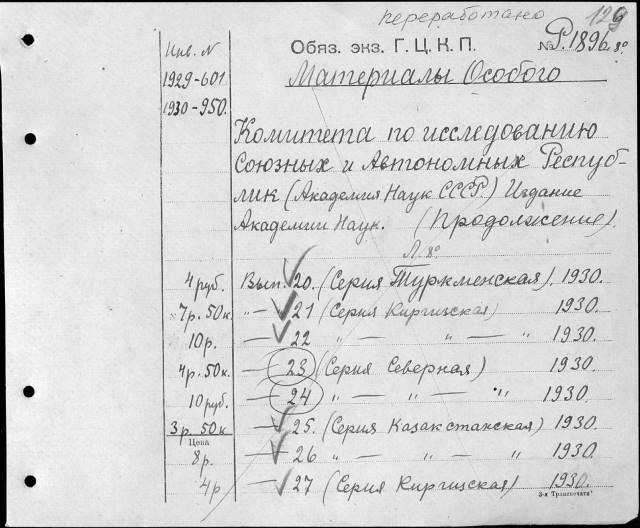 переработано 129
Инв. N Обяз. экз. Г.Ц.К.П. № Р.1896 8º
1929-601. Материалы Особого
1930-950.
Комитета по исследованию
Союзных и Автономных Респуб-
лик (Академия Наук СССР.) Издание
Академии Наук. (Продолжение).
Л. 8º
4 руб. Вып. 20. (Серия Туркменская). 1930.
7р. 50к. „ — 21 (Серия Киргизская) 1930.
10р. — 22 „ — „ — „ 1930.
4р. 50к. — 23 (Серия Северная) 1930.
10 руб. — 24 „ — „ — „ 1930.
3р. 50к — 25. (Серия Казакстанская) 1930.
Цена
8р. — 26 „ — „ — „ 1930.
4р. — 27 (Серия Киргизская) 1930.
3-я Транспечати